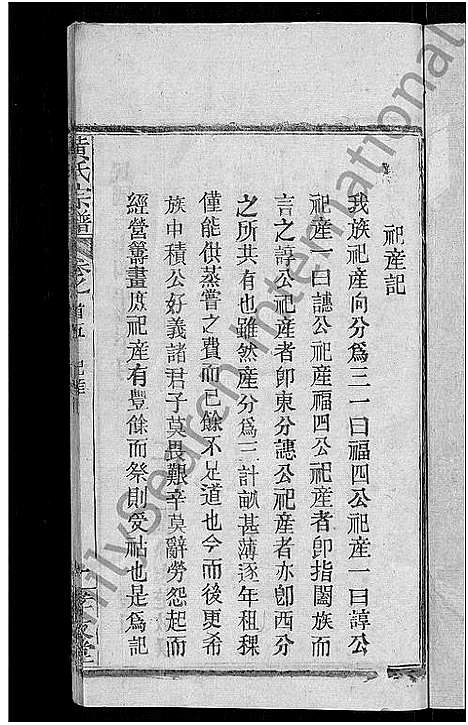 祀產記
我族祀產向分爲三一曰福四公祀產一曰諄公
祀產一曰譓公祀產福四公祀產者卽指闔族而
言之諄公祀產者卽東分譓公祀產者亦卽西分
之所共有也雖然產分爲三計畝甚薄逐年租稞
僅能供蒸嘗之費而已餘不足道也今而後更希
族中積公好義諸君子莫畏艱辛莫辭勞怨起而
經營籌畫庶祀產有豐餘而祭則受祜也是爲記
黃氏宗譜 卷之首五 祀產
FamilySearch International